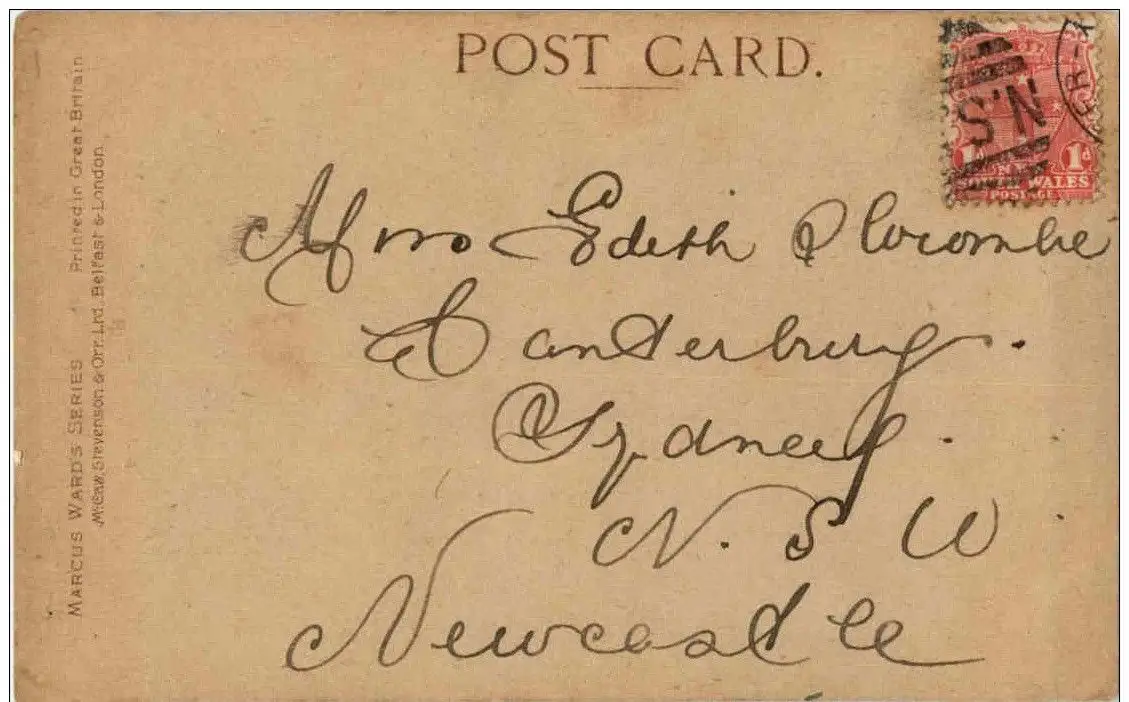 POST CARD.
S'N
1d
1d
WALES
POSTAGE
Mrs Edith Slocombe
Canterbury.
Sydney.
N. S W
Newcastle
MARCUS WARD'S SERIES Printed in Great Britain
McCaw, Stevenson & Orr, Ltd, Belfast & London